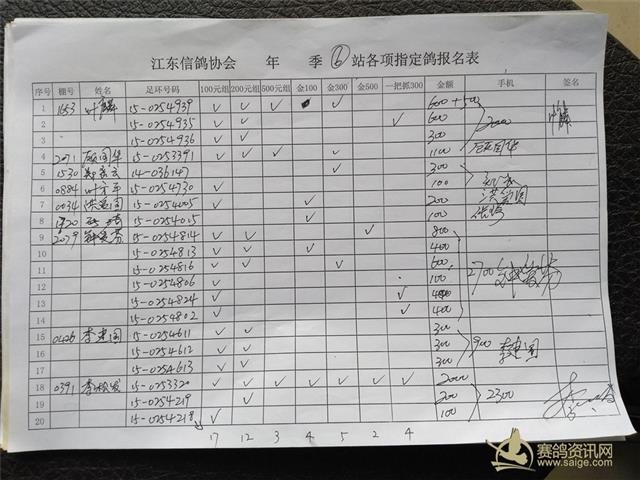 江东信鸽协会 年 季 ⑥ 站各项指定鸽报名表
序号 棚号 姓名 足环号码 100元组 200元组 500元组 金100 金300 金500 一把抓300 金额 手机 签名
1 1653 叶麟 15-0254939 ✓ ✓ ✓ ✓ 600+500
2 15-0254935 ✓ ✓ ✓ 600 2000
3 15-0254936 ✓ ✓ 300
4 2071 15-0253391 ✓ ✓ ✓ ✓ 1100
5 1530 14-036147 ✓ 300
6 0884 叶方平 15-0254730 ✓ 100
7 0034 洪爱国 15-0254005 ✓ ✓ 200 洪爱国
8 1920 15-0254015 ✓ 100
9 2079 15-0254814 ✓ ✓ ✓ 800
10 15-0254813 ✓ ✓ ✓ 400
11 15-0254816 ✓ ✓ ✓ 600 2700
12 15-0254806 ✓ 100
13 15-0254824 ✓ ✓ 400
14 15-0254802 ✓ ✓ 400
15 0426 李建国 15-0254611 ✓ ✓ 300
16 15-0254612 ✓ ✓ 300 900 李建国
17 15-0254613 ✓ ✓ 300
18 0391 15-0253320 ✓ ✓ ✓ ✓ ✓ ✓ ✓ 2000
19 15-0254219 ✓ 200 2300
20 15-0254218 ✓ 100
17 12 3 4 5 2 4
赛鸽资讯网
www.saige.com